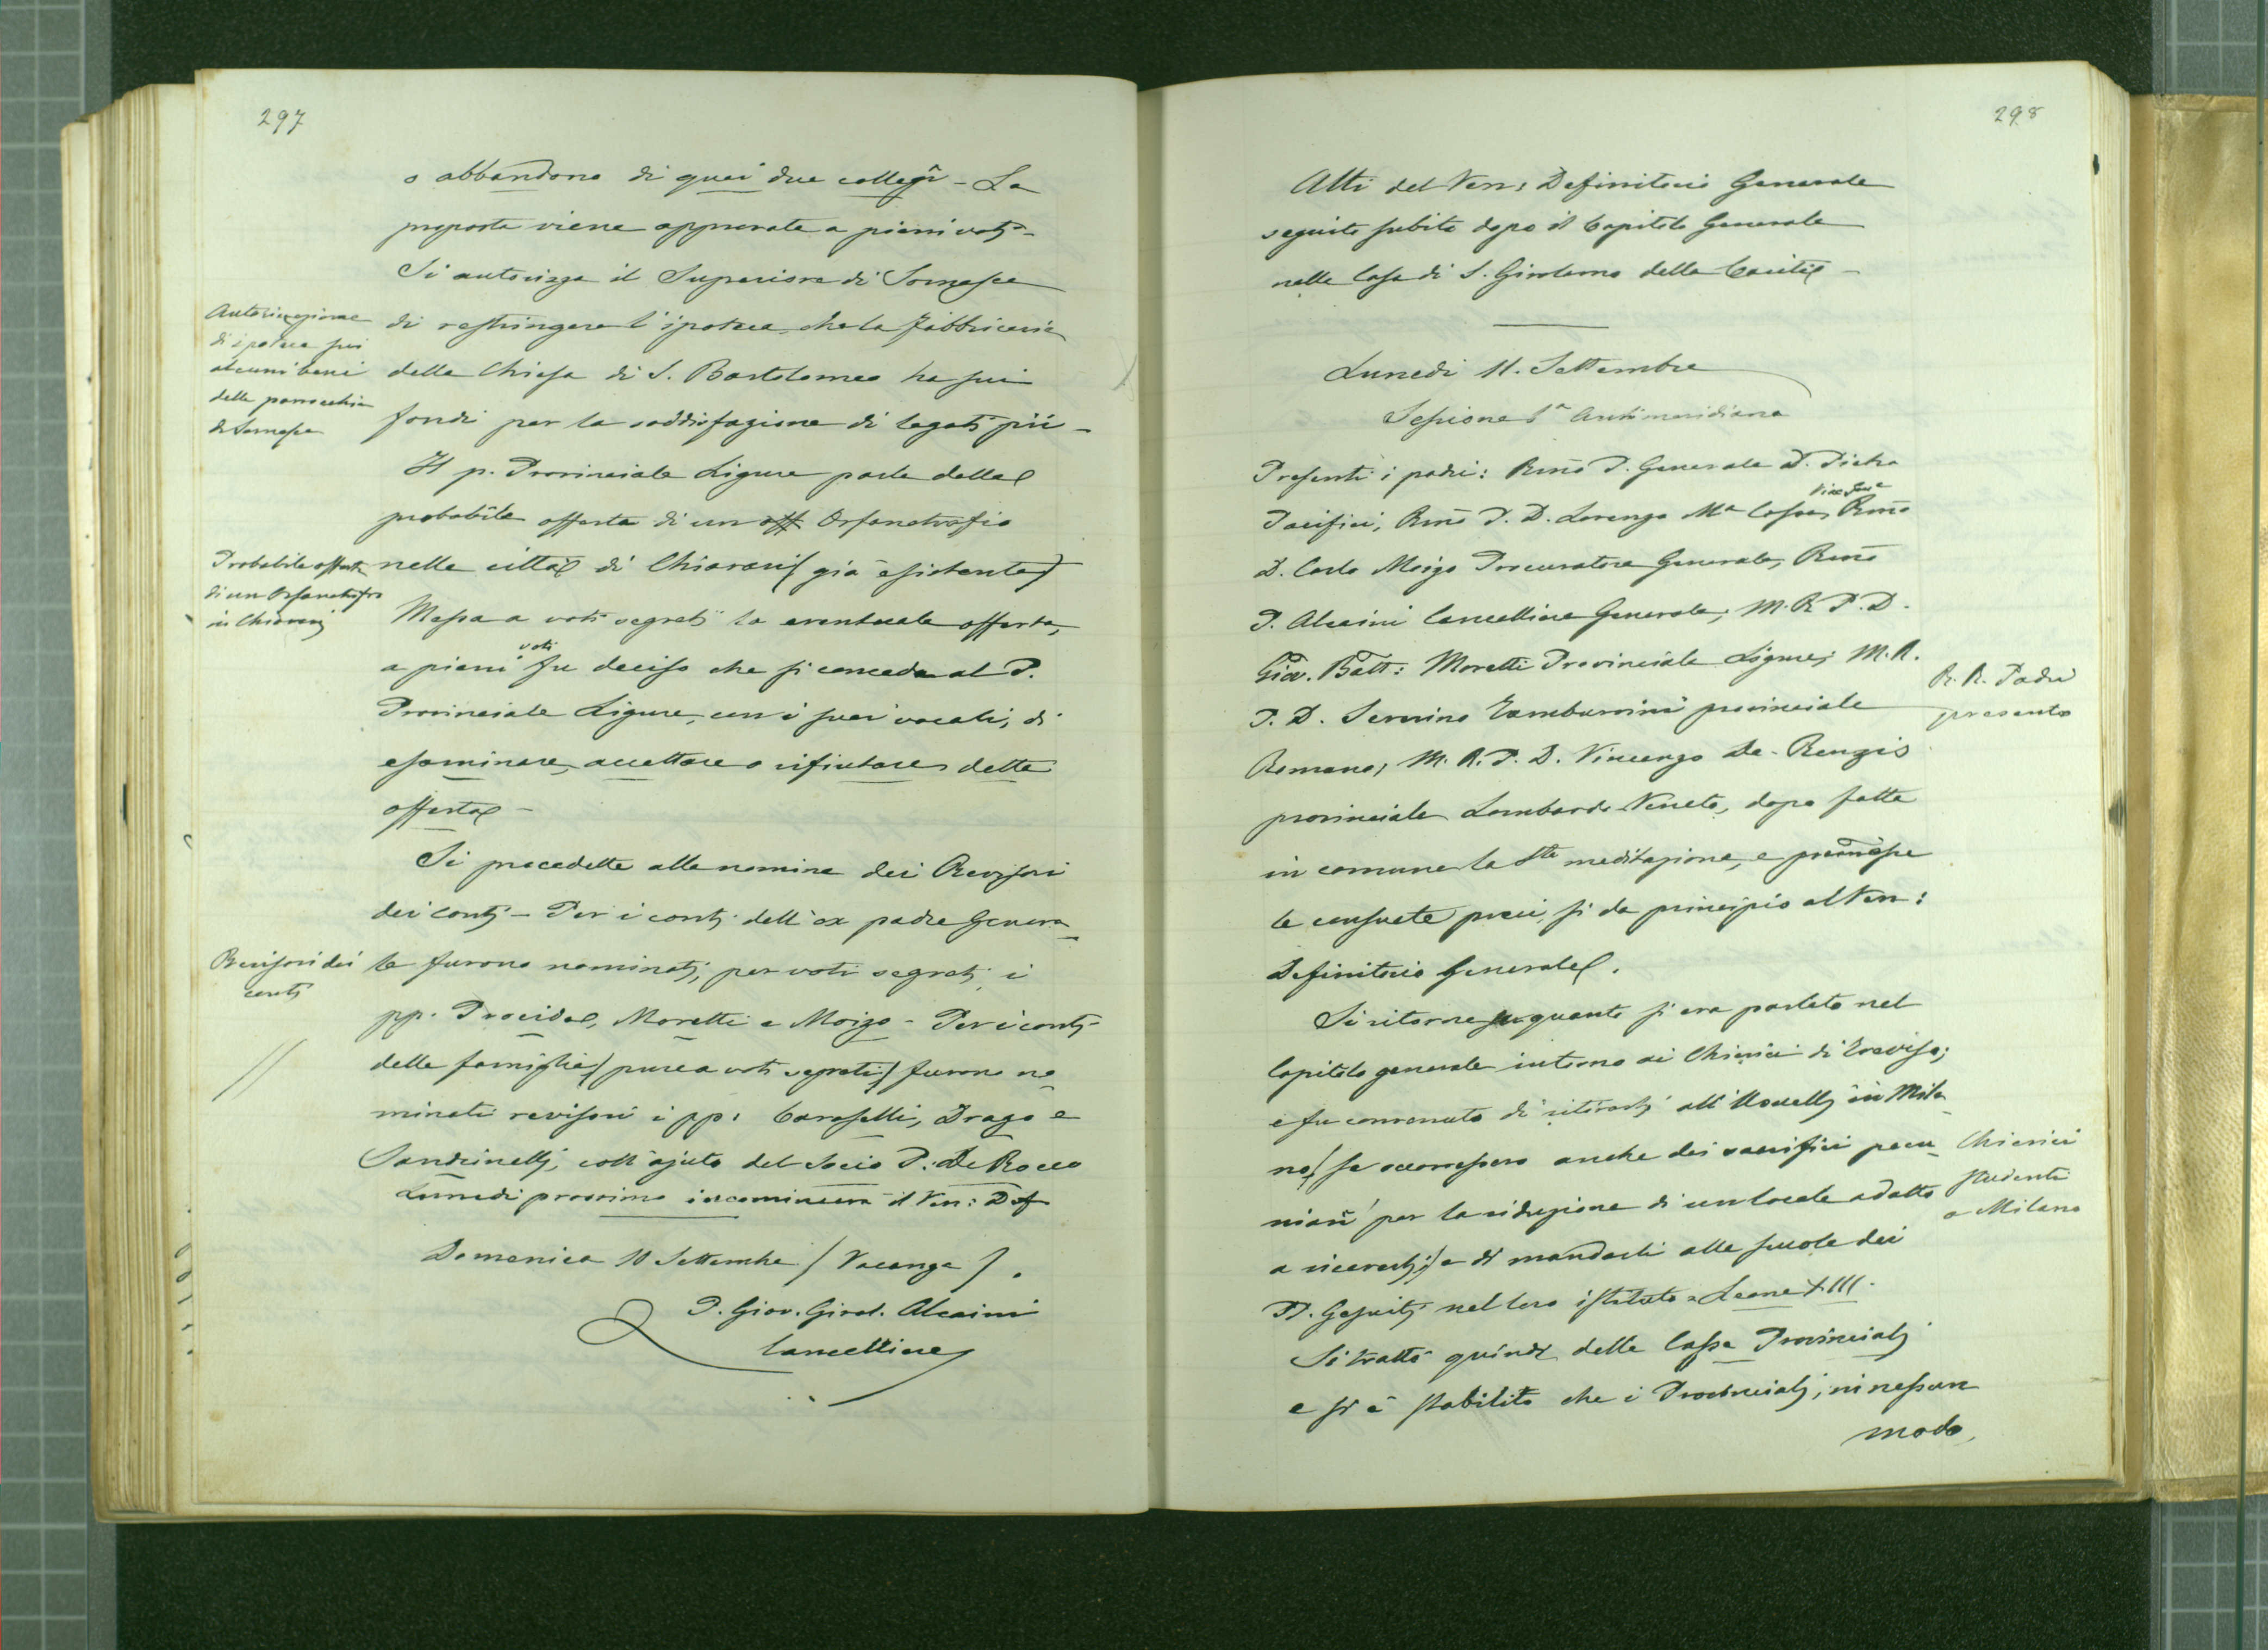 297
o abbandono di quei due collegi - La
proposta viene approvata a pieni voti -
Si autorizza il Superiore di Somasca
Autorizzazione
di ipoteca sui
alcuni beni
della parrocchia
di Somasca
di restringere l'ipoteca che la Fabbriceria
della Chiesa di S. Bartolomeo ha sui
fondi per la soddisfazione di legati pii -
Il p. Provinciale Ligure parla della
probabile offerta di un off Orfanotrofio
Probabile offerta
di un Orfanotrofio
in Chiavari
nella città di Chiavari (già esistente)
Messa a voti segreti la eventuale offerta,
a pieni voti fu deciso che si conceda al P.
Provinciale Ligure, con i suoi vocali, di
esaminare, accettare o rifiutare detta
offerta -
Si procedette alla nomina dei Revisori
dei conti - Per i conti dell'ex padre Genera-
Revisori dei
conti
le furono nominati, per voti segreti, i
pp. Procida, Moretti e Moizo - Per i conti
delle famiglie (pure a voti segreti) furono no-
minati revisori i pp: Caroselli, Drago e
Sandrinelli, coll'ajuto del Socio P. De Rocco
Lunedì prossimo incomincerà il Ven: Def
Domenica 10 Settembre (Vacanza).
P. Giov. Girol. Alcaini
Cancelliere
298
Atti del Ven: Definitorio Generale
seguito subito dopo il Capitolo Generale
nella Casa di S. Girolamo della Carità -
Lunedì 11. Settembre
Sessione 1ª Antimeridiana
Presenti i padri: Rmo P. Generale D. Pietro
Pacifici, Rmo P. D. Lorenzo Mª Cossa, Vice Gene Rmo
D. Carlo Moizo Procuratore Generale, Rmo
P. Alcaini Cancelliere Generale, M. R. P. D.
Giov. Batt: Moretti Provinciale Ligure; M. R.
P. D. Severino Tamburrini provinciale
R. R. Padri
presenti
Romano, M. R. P. D. Vincenzo De-Renzis
provinciale Lombardo Veneto, dopo fatta
in comune la Sta meditazione, e premesse
le consuete preci, si dà principio al Ven:
Definitorio Generale.
Si ritorna su quanto si era parlato nel
Capitolo generale intorno ai Chierici di Treviso;
e fu convenuto di ritirarli all'Usuelli in Mila-
no (se occorressero anche dei sacrifici pecu-
Chierici
studenti
a Milano
niari per la riduzione di un locale adatto
a riceverli) e di mandarli alle scuole dei
PP. Gesuiti nel loro istituto = Leone XIII.
Si trattò quindi delle Casse Provinciali
e si è stabilito che i Provinciali, in nessun
modo,